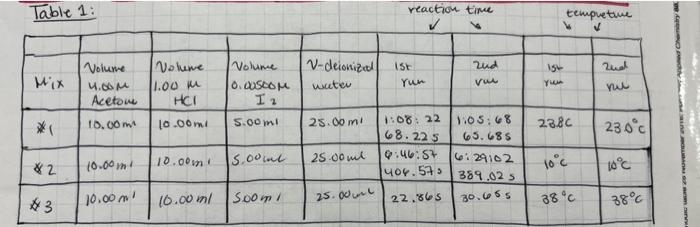 Table 1:
reaction time
tempreture
Mix
Volume 4.00M Acetone
Volume 1.00 M HCl
Volume 0.00500M I2
V-deionized water
1st run
2nd run
1st run
2nd run
#1
10.00ml
10.00ml
5.00ml
25.00ml
1:08:22
68.22s
1:05:68
65.68s
23.8C
23.0°C
#2
10.00ml
10.00ml
5.00ml
25.00ml
6:46:57
406.57s
6:29:02
389.02s
10°C
10°C
#3
10.00ml
10.00ml
5.00ml
25.00ml
22.86s
30.65s
38°C
38°C